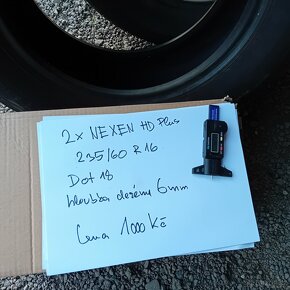 2x NEXEN HD Plus
235/60 R16
Dot 18
hloubka dezénu 6mm
Cena 1000 Kč